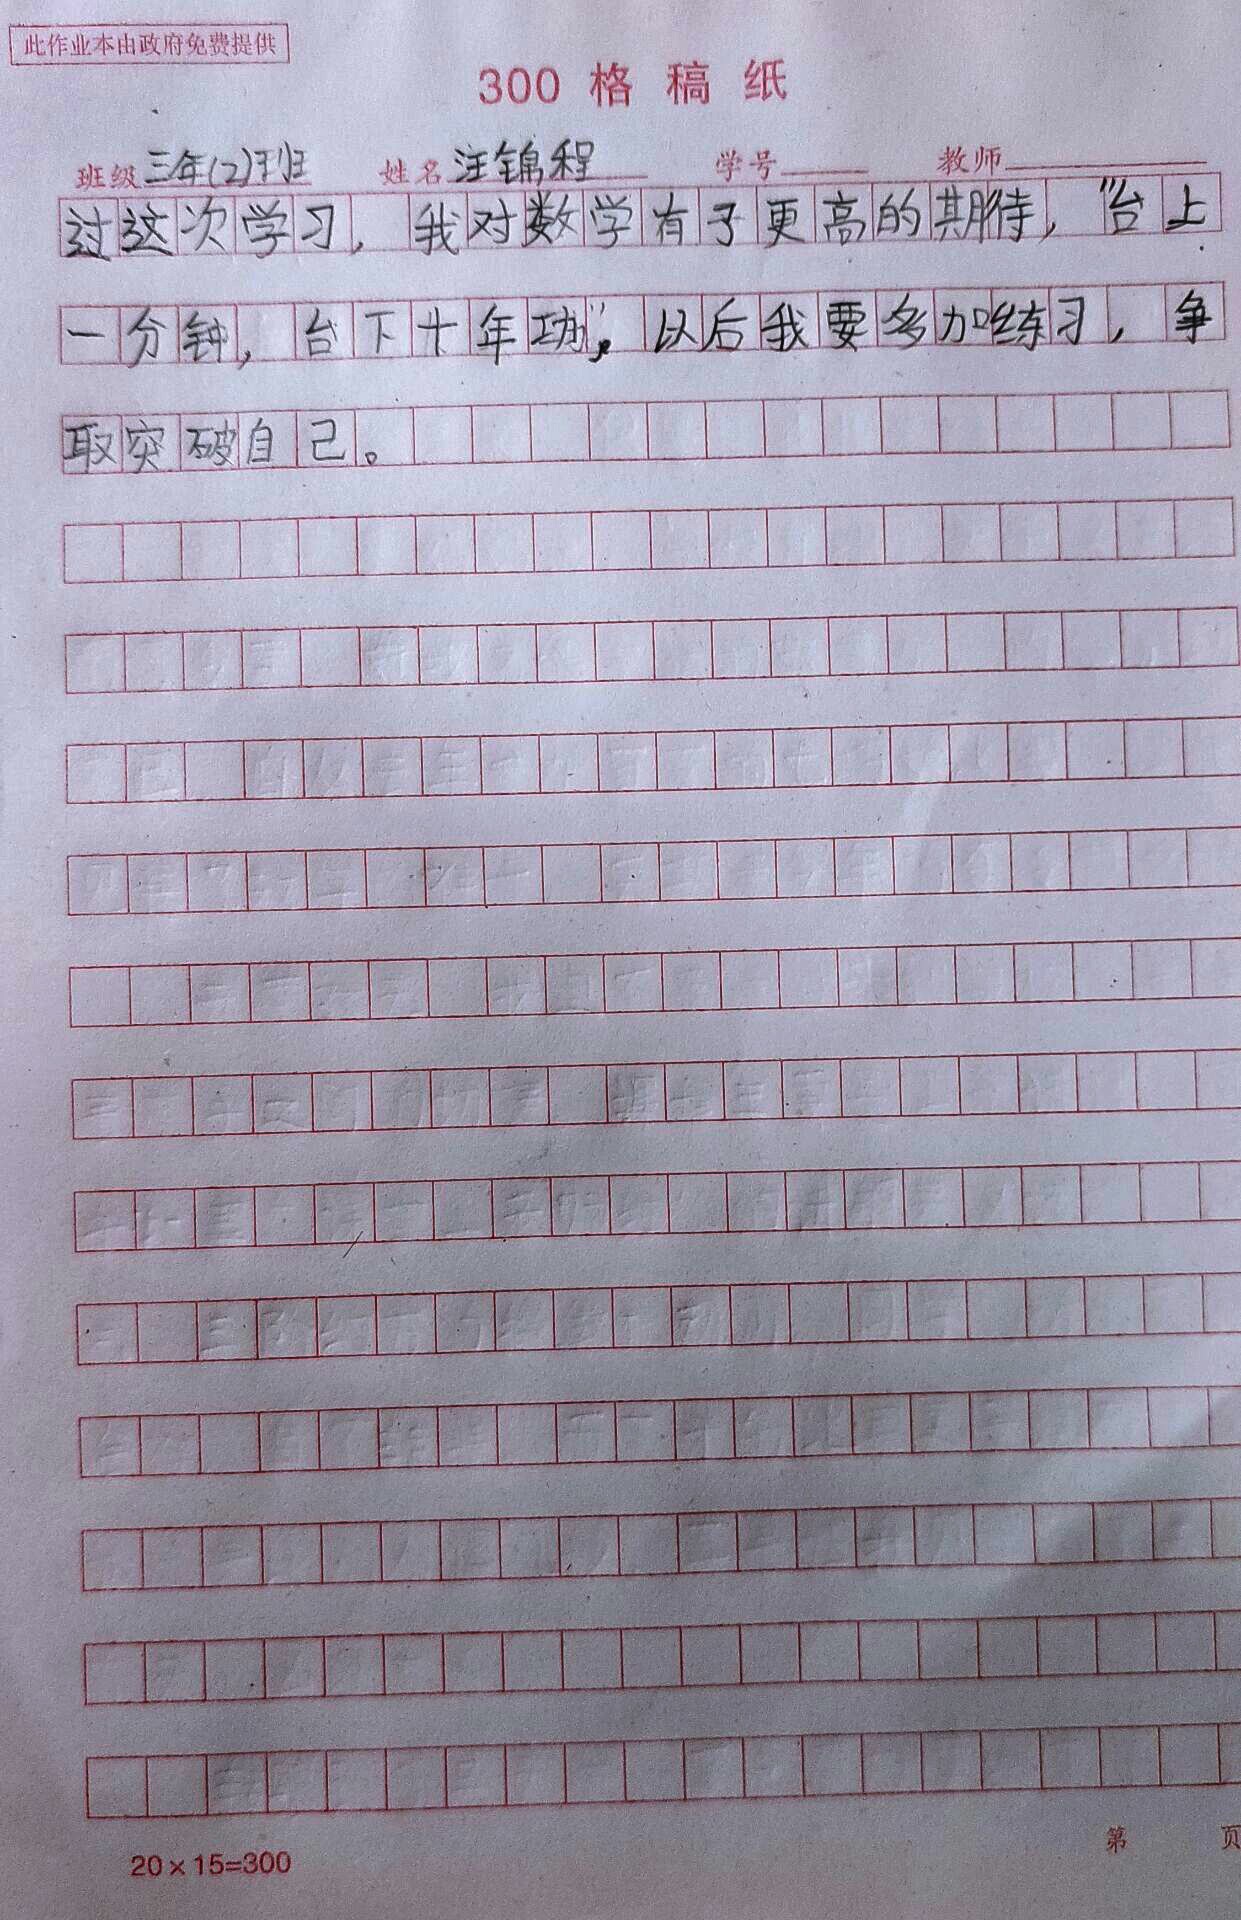 此作业本由政府免费提供
300 格 稿 纸
班级 三年(2)班 姓名 汪锦程 学号 教师
过这次学习，我对数学有了更高的期待，"台上
一分钟，台下十年功"，以后我要多加练习，争
取突破自己。
第 页
20×15=300